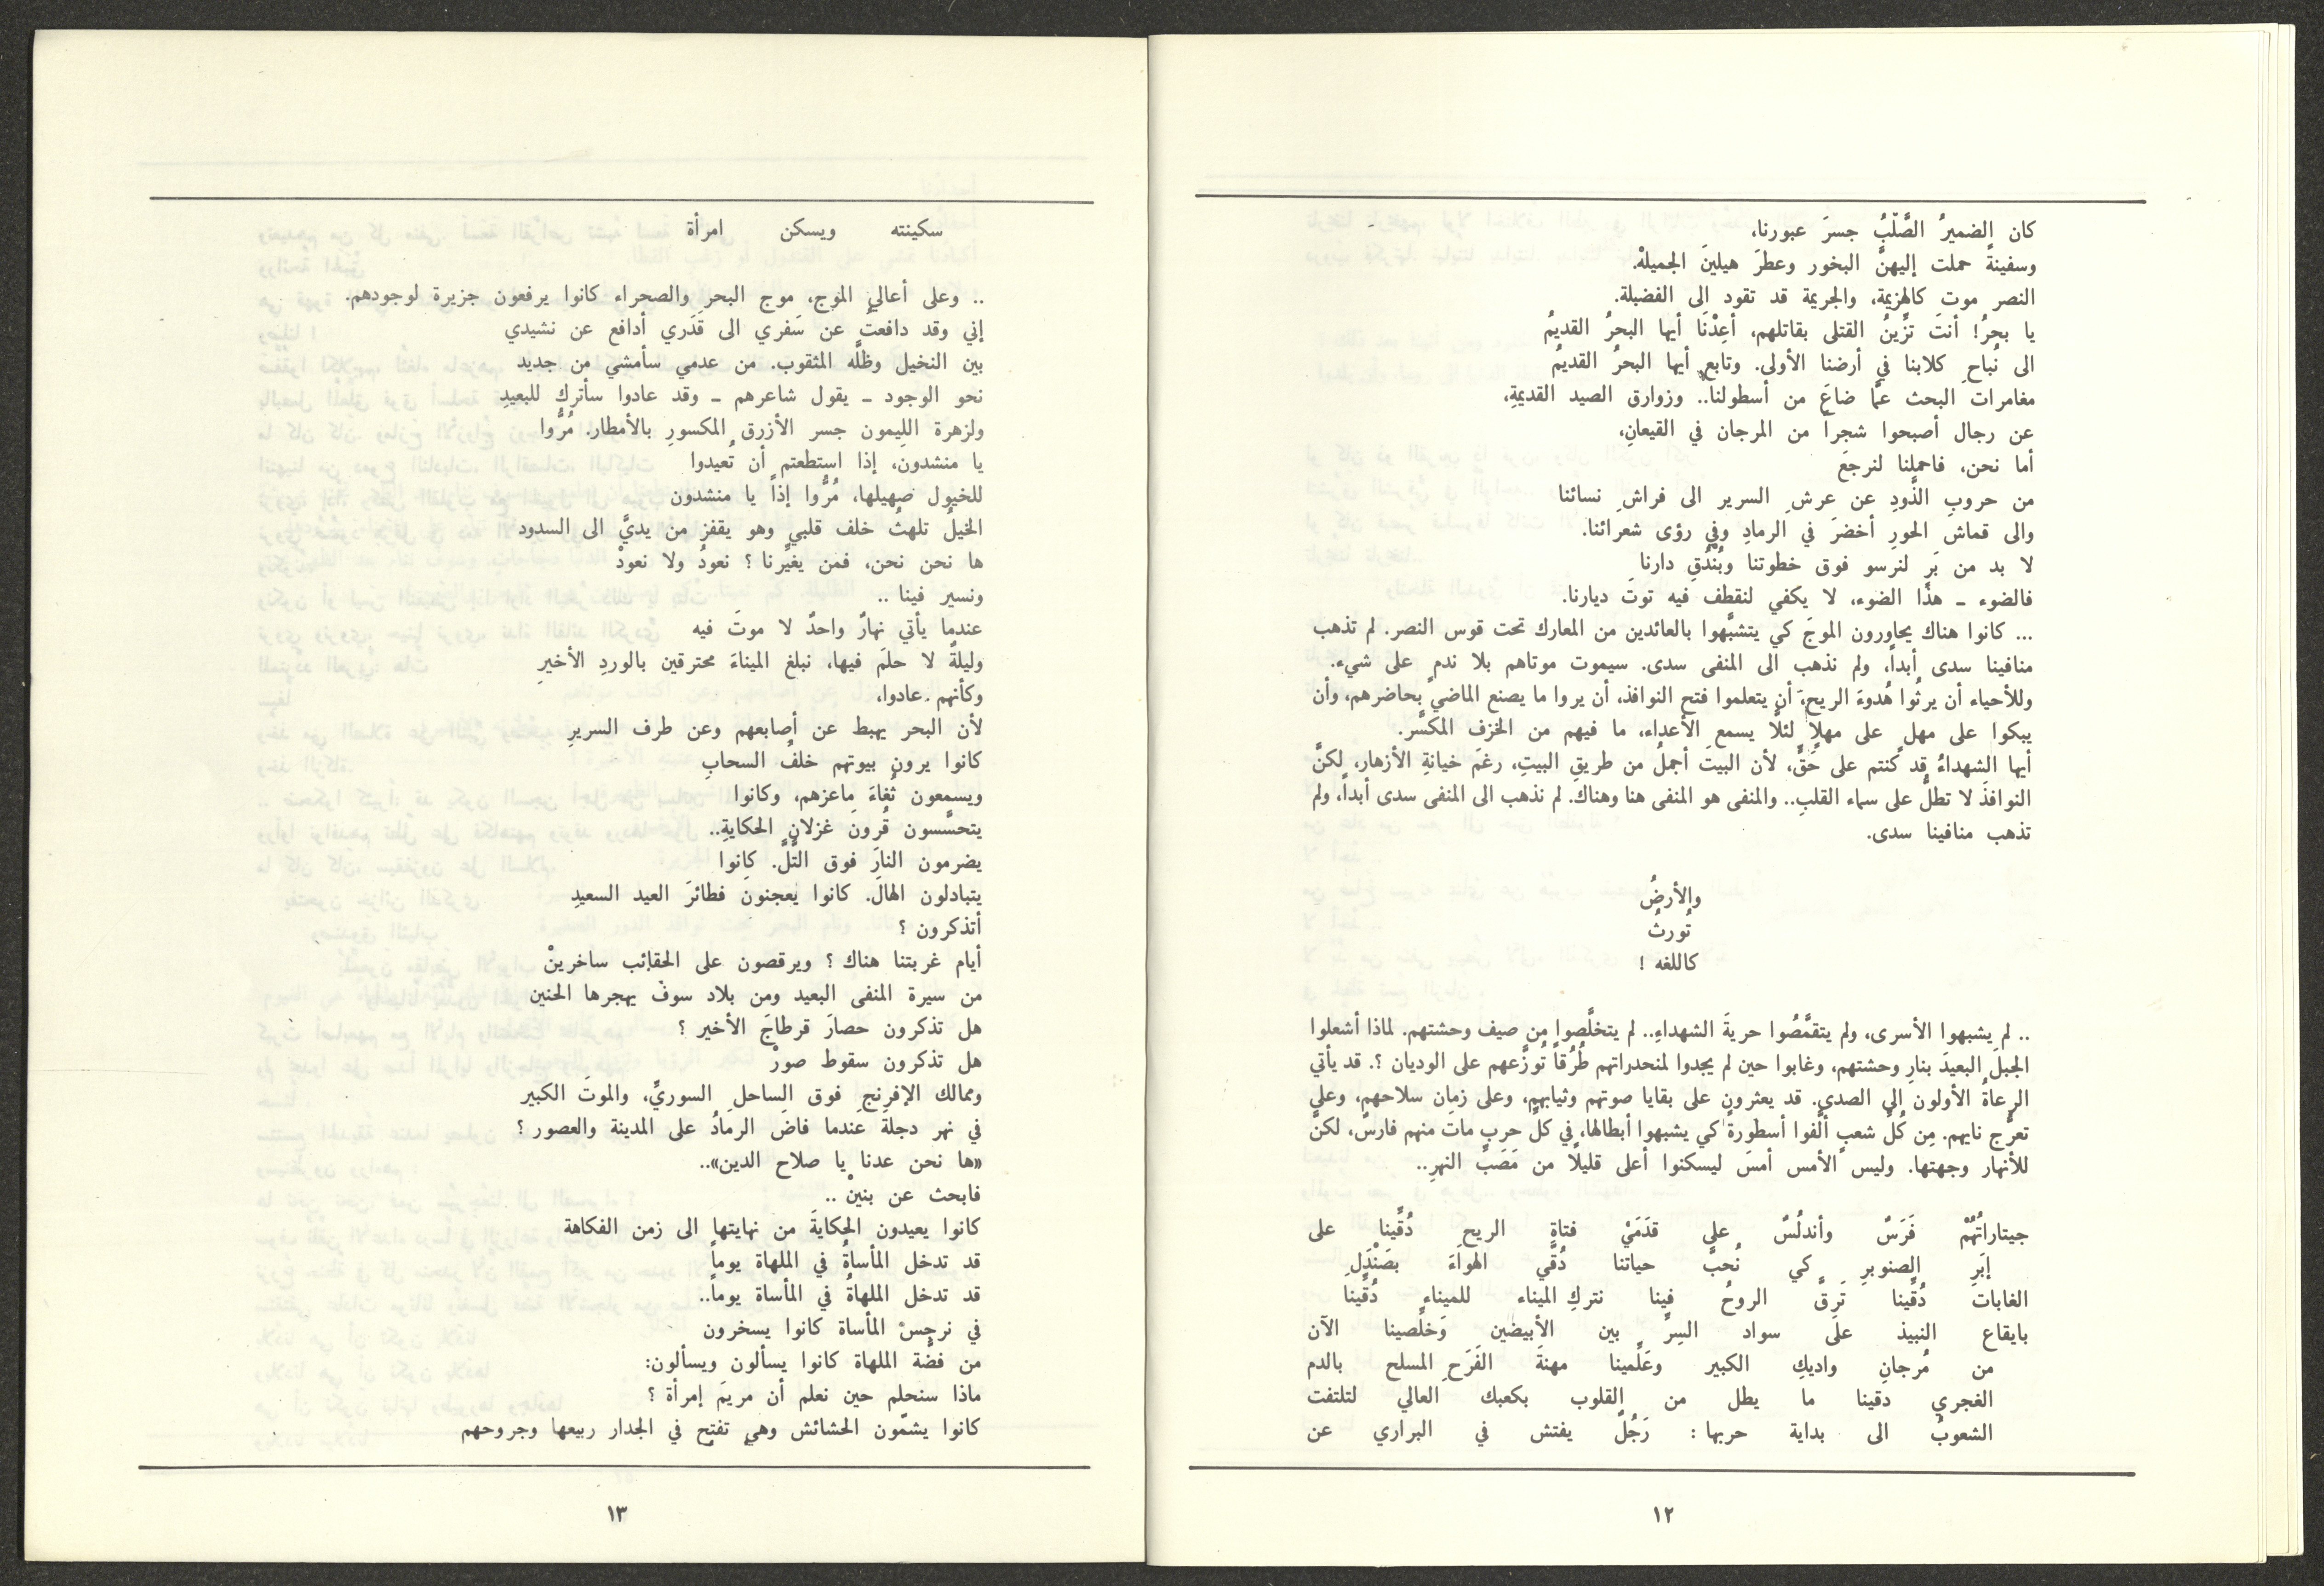 كان الضميرُ الصَّلْبُ جسرَ عبورنا،
وسفينةً حملت إليهنَّ البخور وعطرَ هيلينَ الجميلهْ.
النصر موت كالهزيمة، والجريمة قد تقود الى الفضيلة.
يا بحرُ! أنتَ تزِّينُ القتلى بقاتلهم، أعِدْنَا أيها البحرُ القديمُ
الى نُباحِ كلابنا في أرضنا الأولى. وتابع أيها البحرُ القديمُ
مغامرات البحث عمَّا ضاعَ من أسطولنا.. وزوارق الصيد القديمةِ،
عن رجال أصبحوا شجراً من المرجان في القيعانِ،
أما نحن، فاحملنا لنرجعَ
من حروبِ الذَّودِ عن عرشِ السرير الى فراشِ نسائنا
والى قماش الحورِ أخضرَ في الرمادِ وفي رؤى شعرائنا.
لا بد من بَرٍ لنرسو فوق خطوتنا وبُنْدُقِ دارنا
فالضوء ـ هذا الضوء، لا يكفي لنقطف فيه توتَ ديارنا.
... كانوا هناك يحاورون الموجَ كي يتشبَّهوا بالعائدين من المعارك تحت قوس النصر. لم تذهب
منافينا سدى أبداً، ولم نذهب الى المنفى سدى. سيموت موتاهم بلا ندمٍ على شيء.
وللأحياء أن يرثُوا هُدوءَ الريح، أن يتعلموا فتح النوافذ، أن يروا ما يصنع الماضي بحاضرهم، وأن
يبكوا على مهلٍ على مهلٍ لئلَّا يسمع الأعداء، ما فيهم من الخزف المكسَّر.
أيها الشهداءُ قد كنتم على حَقٍّ، لأن البيتَ أجملُ من طريقِ البيتِ، رغمَ خيانةِ الأزهار، لكنَّ
النوافذَ لا تطلُّ على سماء القلبِ.. والمنفى هو المنفى هنا وهناك. لم نذهب الى المنفى سدى أبداً، ولم
تذهب منافينا سدى.
والأرضُ
تُورثُ
كاللغه !
.. لم يشبهوا الأسرى، ولم يتقمَّصُوا حريةَ الشهداءِ.. لم يتخلَّصوا من صيف وحشتهم. لماذا أشعلوا
الجبلَ البعيدَ بنارِ وحشتهم، وغابوا حين لم يجدوا لمنحدراتهم طُرُقاً تُوزَّعهم على الوديان ؟. قد يأتي
الرعاةُ الأولون الى الصدى. قد يعثرون على بقايا صوتهم وثيابهم، وعلى زمانِ سلاحهم، وعلى
تعرُّج نايهم. مِن كُلِّ شعبٍ ألَّفوا أسطورةً كي يشبهوا أبطالها، في كلِّ حربٍ ماتَ منهم فارسٌ، لكنَّ
للأنهار وجهتها. وليس الأمس أمسَ ليسكنوا أعلى قليلًا من مَصَبِّ النهرِ..
جيتاراتُهُمْ فَرَسٌ وأندلُسٌ على قدَمَيْ فتاةِ الريحِ دُقِّينا على
إبَرِ الصنوبرِ كي نُحبَّ حياتنا دُقِّي الهواءَ بصَنْدَلِ
الغابات دُقِّينا تَرِقَّ الروحُ فينا نتركِ الميناء للميناءِ دُقِّينا
بايقاع النبيذ على سواد السِرِّ بين الأبيضين وَخلِّصينا الآن
من مُرجانِ واديكِ الكبير وعَلِّمينا مهنةَ الفَرَحِ المسلح بالدم
الغجري دقينا ما يطل من القلوب بكعبك العالي لتلتفت
الشعوبُ الى بداية حربها : رَجُلٌ يفتش في البراري عن
١٢
سكينته ويسكن امرأة
.. وعلى أعالي الموج، موج البحر والصحراء كانوا يرفعون جزيرة لوجودهم.
إني وقد دافعتُ عن سَفري الى قَدَري أدافع عن نشيدي
بين النخيل وظلَّه المثقوب. من عدمي سأمشي من جديد
نحو الوجود ـ يقول شاعرهم ـ وقد عادوا سأترك للبعيدِ
ولزهرة الليمون جسر الأزرق المكسورِ بالأمطار. مُرُّوا
يا منشدون، إذا استطعتم أن تُعيدوا
للخيول صهيلها، مُرُّوا إذاً يا منشدون
الخيلُ تلهثُ خلف قلبي وهو يقفز من يديَّ الى السدود
ها نحن نحن، فمن يغيِّرنا ؟ نعودُ ولا نعودْ
ونسير فينا ..
عندما يأتي نهارٌ واحدٌ لا موتَ فيه
وليلةٌ لا حلمَ فيها، نبلغ الميناءَ محترقين بالوردِ الأخيرِ
وكأنهم عادوا،
لأن البحر يهبط عن أصابعهم وعن طرف السريرِ
كانوا يرون بيوتهم خلفَ السحابِ
ويسمعون ثُغاءَ ماعزهم، وكانوا
يتحسَّسون قُرونَ غزلانِ الحكايةِ..
يضرمون النارَ فوق التَّلِّ. كانوا
يتبادلون الهالَ. كانوا يعجنونَ فطائرَ العيد السعيدِ
أتذكرون ؟
أيام غربتنا هناك ؟ ويرقصون على الحقائب ساخرينْ
من سيرة المنفى البعيد ومن بلاد سوفَ يهجرها الحنين
هل تذكرون حصارَ قرطاجَ الأخير ؟
هل تذكرون سقوط صورْ
وممالك الإفرنجِ فوق الساحلِ السوريِّ، والموتَ الكبير
في نهر دجلةَ عندما فاضَ الرمادُ على المدينة والعصور ؟
«ها نحن عدنا يا صلاح الدين»..
فابحث عن بنينْ ..
كانوا يعيدون الحكايةَ من نهايتها الى زمن الفكاهة
قد تدخل المأساةُ في الملهاة يوماً
قد تدخل الملهاةُ في المأساة يوماً..
في نرجسِ المأساة كانوا يسخرون
من فضَّة الملهاة كانوا يسألون ويسألون:
ماذا سنحلم حين نعلم أن مريمَ إمرأة ؟
كانوا يشمّون الحشائش وهي تفتح في الجدار ربيعها وجروحهم
١٣